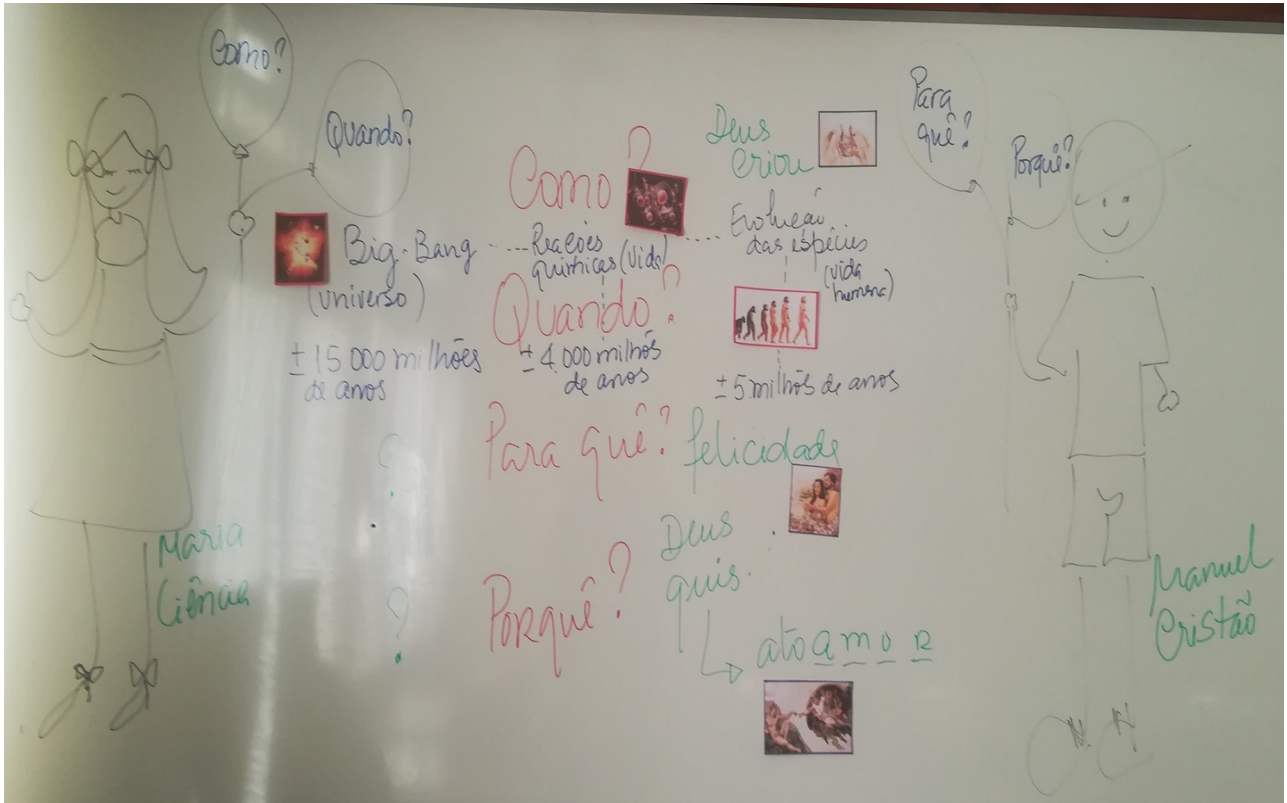 Como?
Quando?
Para
quê?
Porquê?
Como?
Deus
Criou
Big-Bang
(universo)
Reações
químicas (vida)
Evolução
das espécies
(vida
humana)
Quando?
± 15 000 milhões
de anos
± 4 000 milhões
de anos
± 5 milhões de anos
?
Para quê?
felicidade
?
Porquê?
Deus
quis.
ato amor
Maria
Ciência
Manuel
Cristão